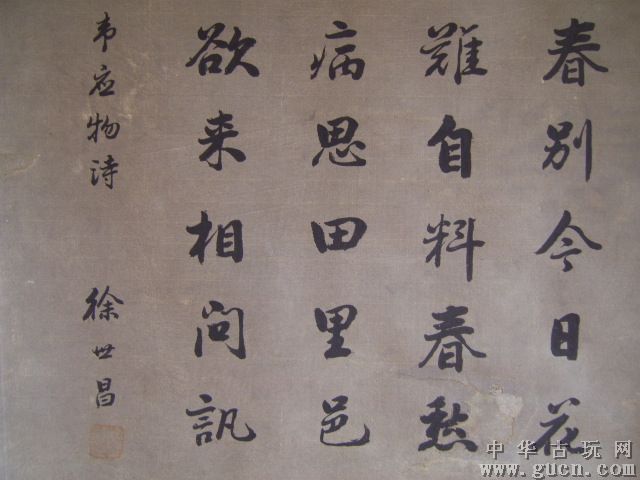 春别今日花
難自料春愁
病思田里邑
欲来相问訊
韦应物诗 徐世昌
中华古玩网
www.gucn.com